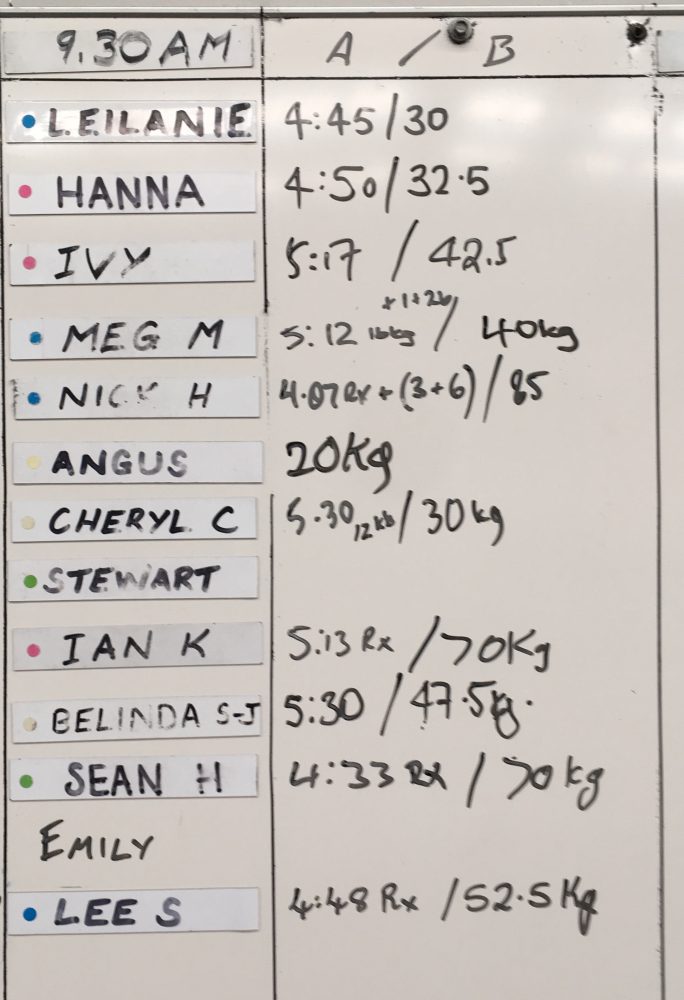 9.30AM A / B
LEILANIE 4:45/30
HANNA 4:50/32.5
IVY 5:17 / 42.5
MEG M 5:12 16kg / 40kg
NICK H 4.07 Rx + (3+6) / 85
ANGUS 20Kg
CHERYL C 5.30 12kb / 30kg
STEWART
IAN K 5:13 Rx / 70Kg
BELINDA S-J 5:30 / 47.5kg.
SEAN H 4:33 Rx / 70kg
EMILY
LEE S 4:48 Rx / 52.5Kg